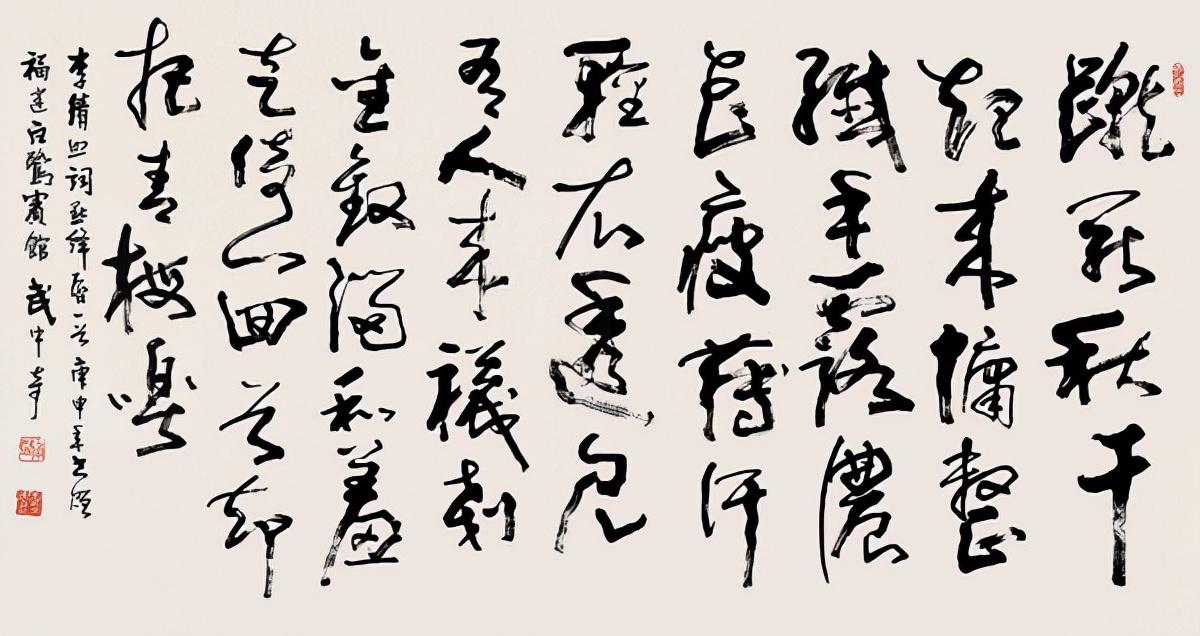 蹴罷秋千
起来慵整
纖手露濃
花瘦薄汗
輕衣透見
有人来襪剗
金釵溜和羞
走倚门回首却
把青梅嗅
李清照詞點絳唇一首 庚申年書贈
福建白鷺賓館 武中奇